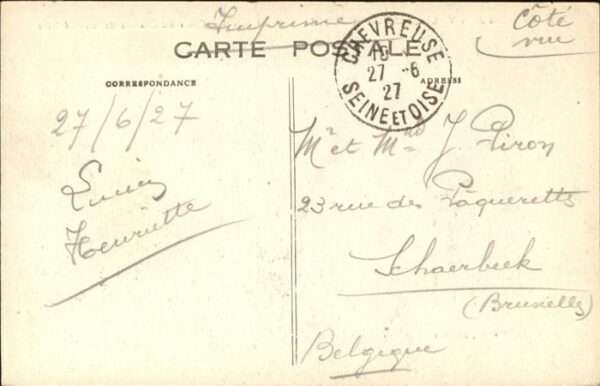 Imprimé
Côté
vue
CARTE POSTALE
CHEVREUSE
15
27 -6
27
SEINE ET OISE
CORRESPONDANCE
ADRESSE
27/6/27
Henriette
Mr et Me J. Piron
23 rue des Pâquerettes
Schaerbeek
(Bruxelles)
Belgique